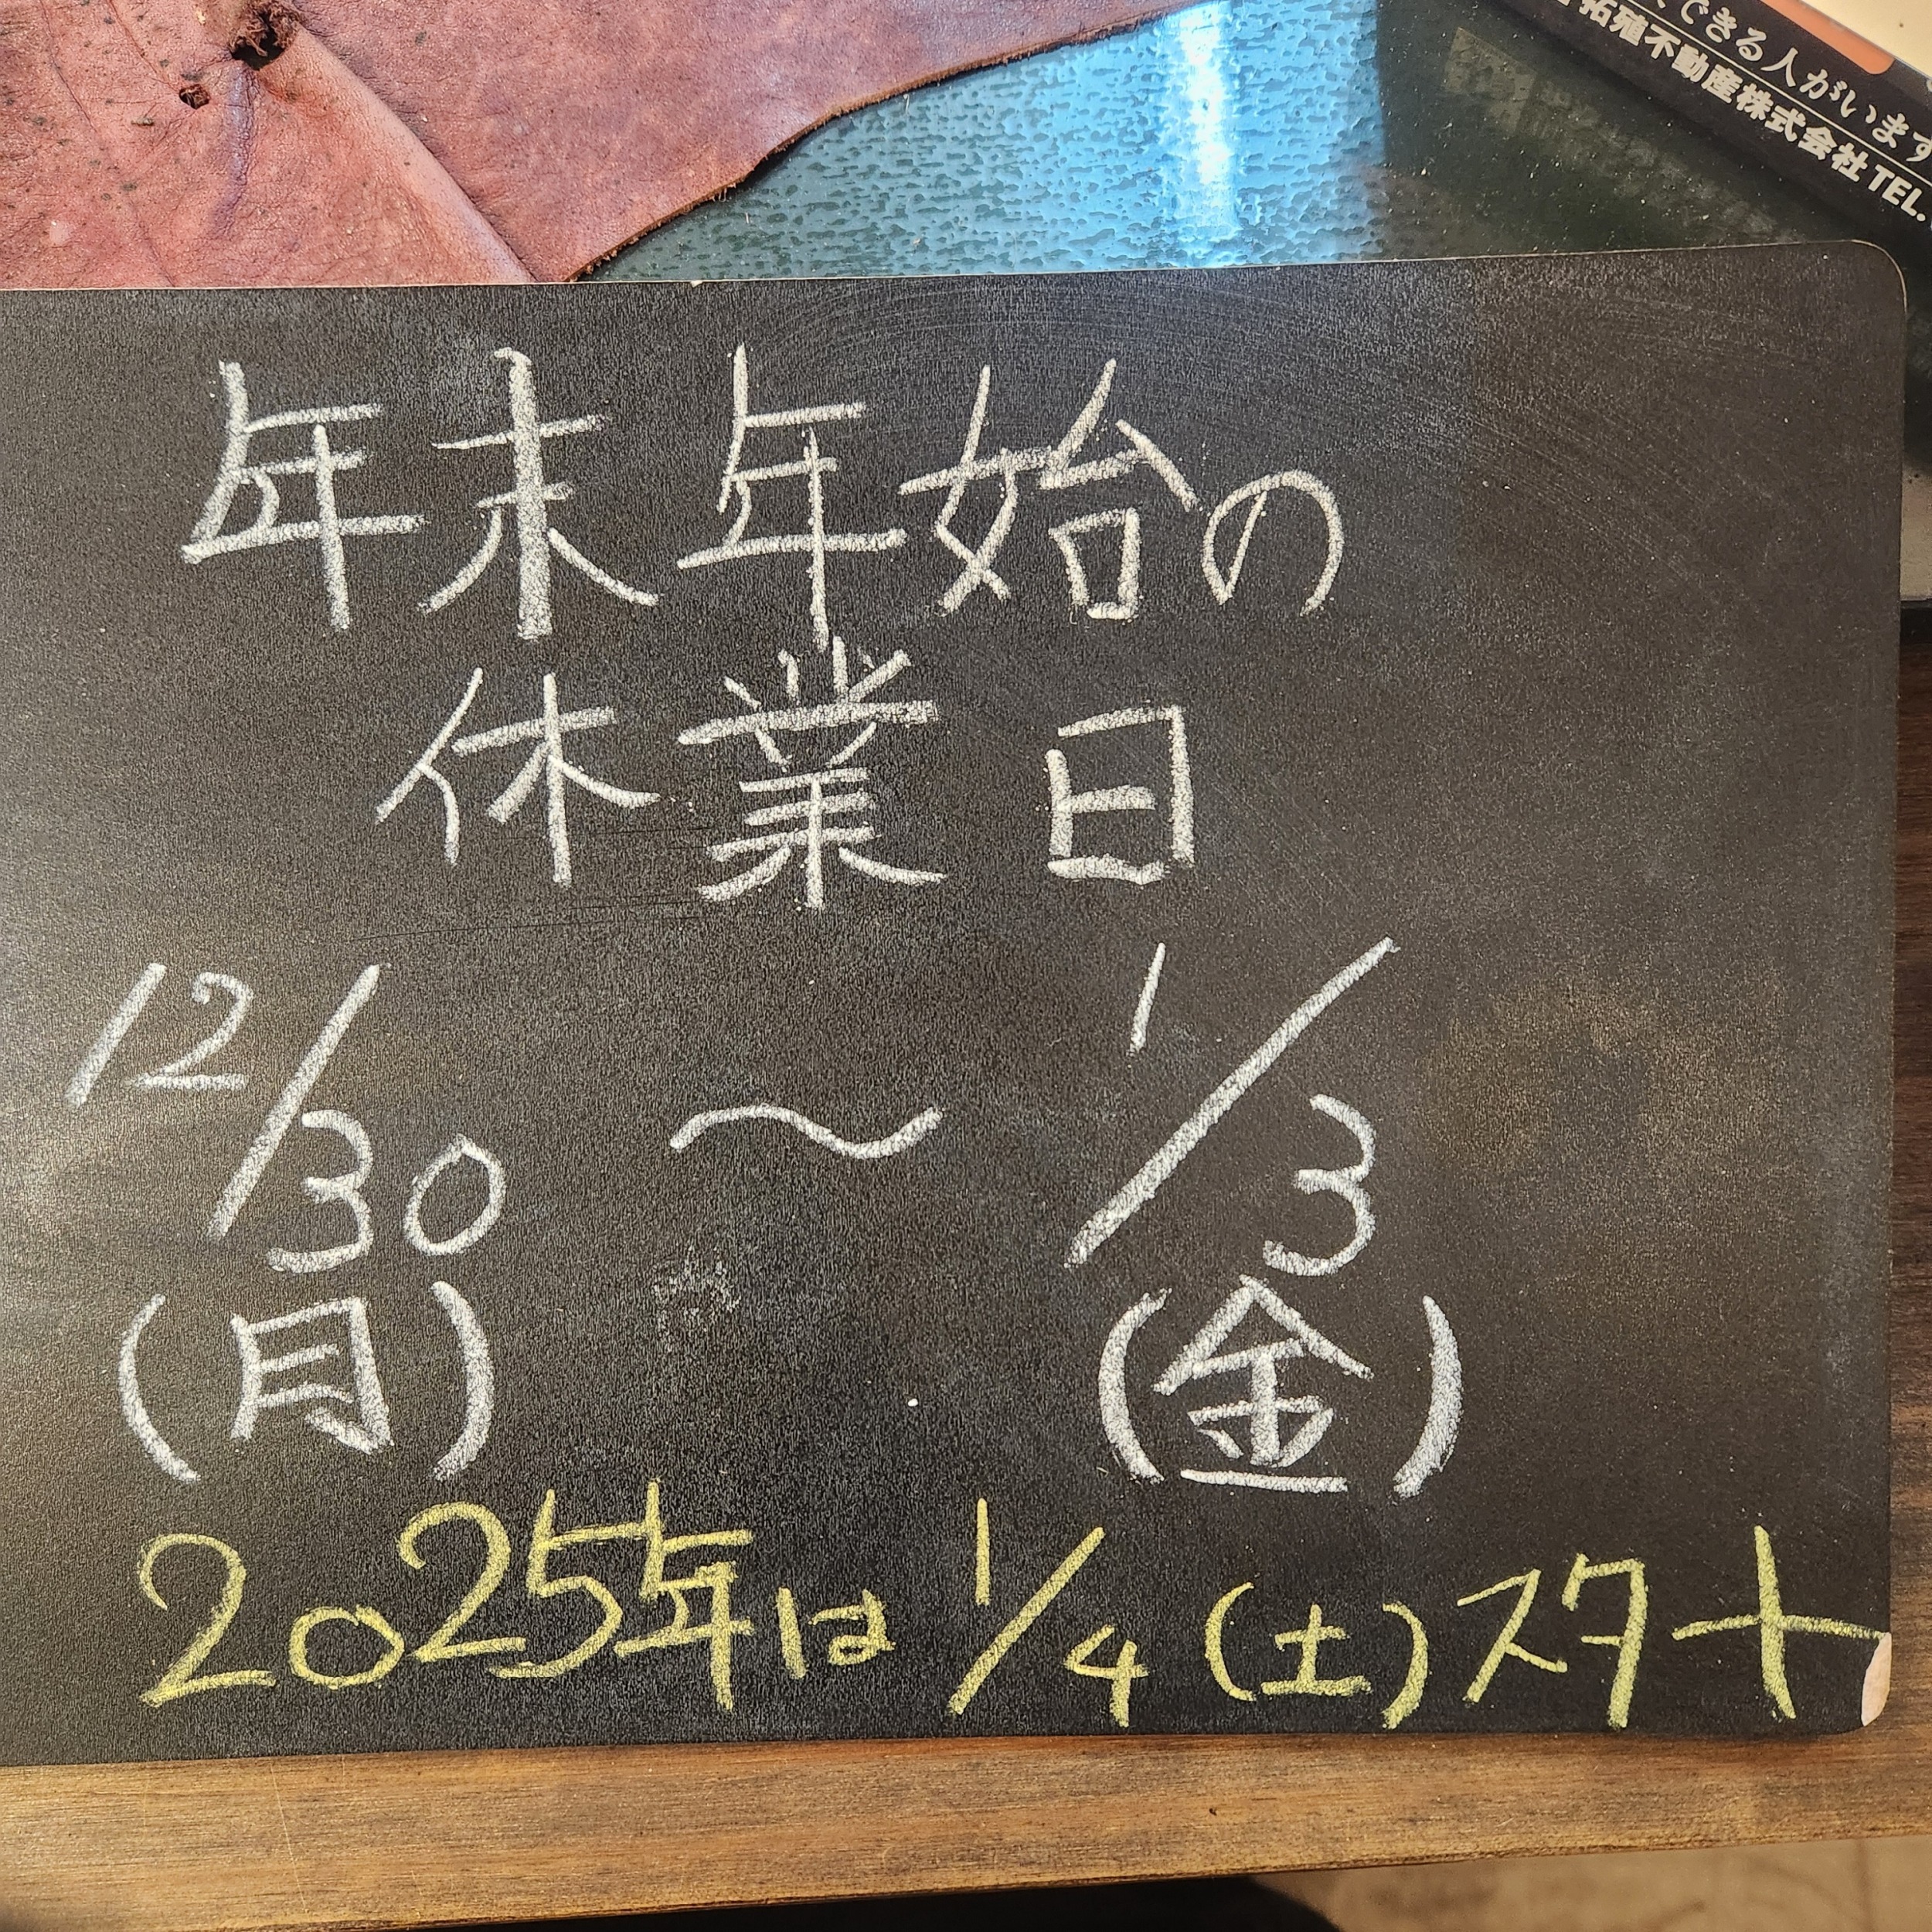 できる人がいます
拓殖不動産株式会社 TEL.
年末年始の
休業日
12/30 〜 1/3
(月) (金)
2025年は 1/4 (土) スタート